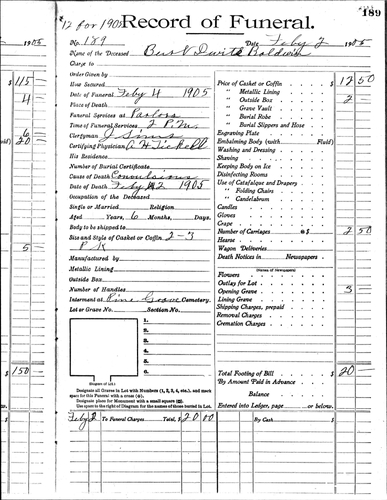 189
#12 for 1905 Record of Funeral.
No. 189 Date Feby 2 1905
Name of the Deceased Dwite Baldwin
Charge to
Order Given by
How Secured
Date of Funeral Feby 4 1905
Place of Death
Funeral Services at Parlors
Time of Funeral Services 2 P.M.
Clergyman J Sims
Certifying Physician A H Tickell
His Residence
Number of Burial Certificate
Cause of Death Convulsions
Date of Death Feby 2 1905
Occupation of the Deceased
Single or Married Religion
Aged Years, 6 Months, Days.
Body to be shipped to
Size and Style of Casket or Coffin 2-3
P K
Manufactured by
Metallic Lining
Outside Box
Number of Handles
Interment at Pine Grove Cemetery.
Lot or Grave No. Section No.
1.
2.
3.
4.
5.
6.
(Diagram of Lot.)
Designate all Graves in Lot with Numbers (1, 2, 3, 4, etc.), and mark
space for this Funeral with a cross (+).
Designate place for Monument with a small square (□).
Use space to the right of Diagram for the names of those buried in Lot.
Feby 2 To Funeral Charges Total, $ 20 00
Price of Casket or Coffin $ 12 50
" Metallic Lining
" Outside Box 2 -
" Grave Vault
" Burial Robe
" Burial Slippers and Hose
Engraving Plate
Embalming Body (with Fluid)
Washing and Dressing
Shaving
Keeping Body on Ice
Disinfecting Rooms
Use of Catafalque and Drapery
" Folding Chairs
" Candelabrum
Candles
Gloves
Crape
Number of Carriages @ $ 2 50
Hearse
Wagon Deliveries
Death Notices in Newspapers
(Names of Newspapers)
Flowers
Outlay for Lot
Opening Grave 3 -
Lining Grave
Shipping Charges, prepaid
Removal Charges
Cremation Charges
Total Footing of Bill $ 20 -
By Amount Paid in Advance
Balance
Entered into Ledger, page or below.
By Cash $
1905
$ 115
4
6
20
5
$ 150